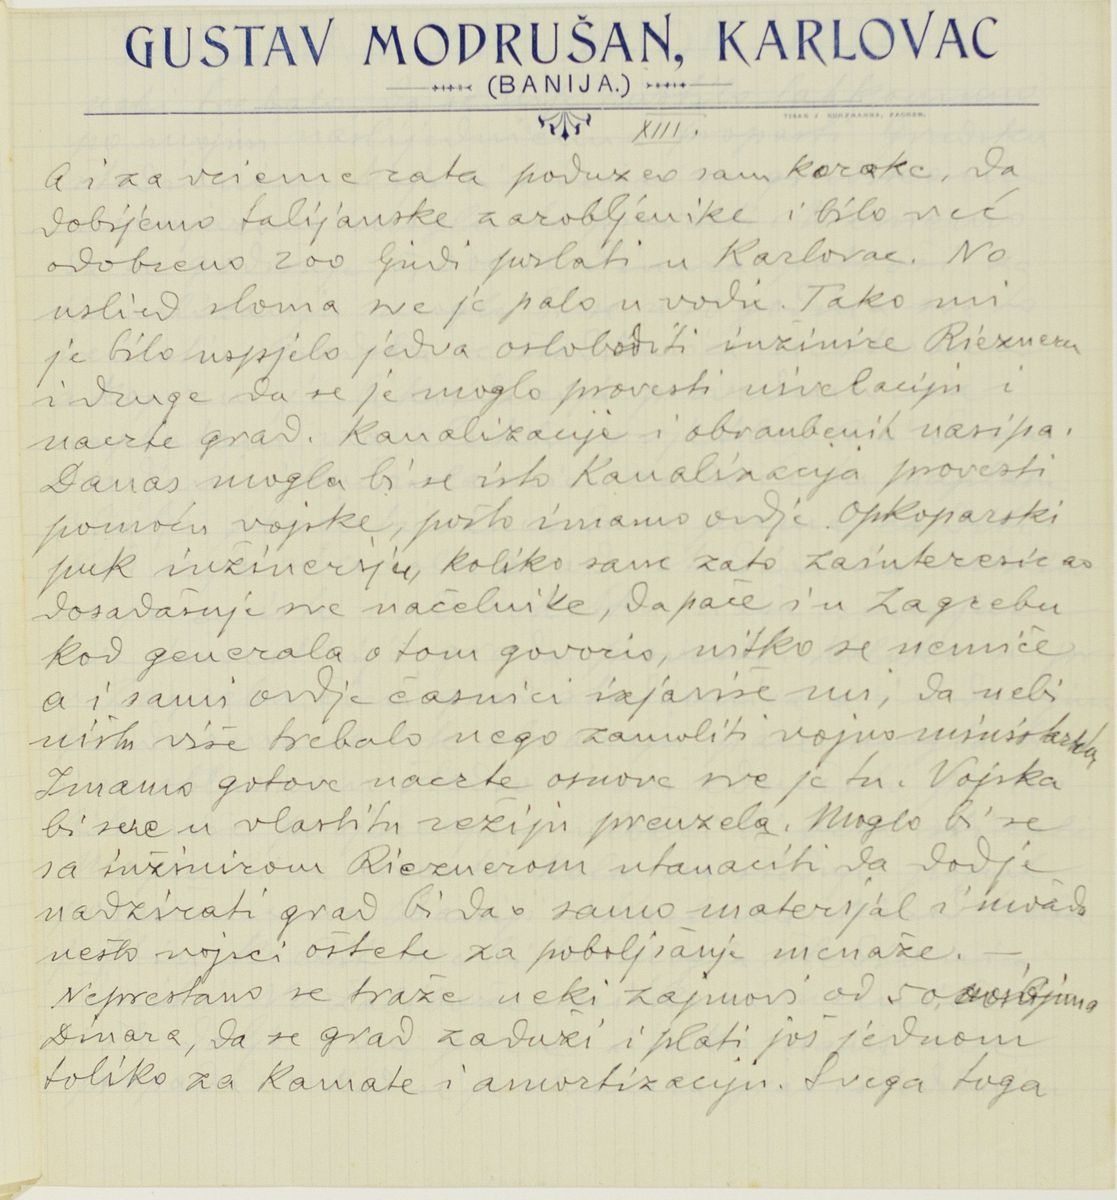 GUSTAV MODRUŠAN, KARLOVAC
(BANIJA.)
TISAK J. KUHZMANNA, ZAGREB.
XIII.
A i za vrieme rata poduzeo sam korake, da
dobijemo talijanske zarobljenike i bilo već
odobreno 200 ljudi poslati u Karlovac. No
uslied sloma sve je palo u vodu. Tako mi
je bilo uspjelo jedva osloboditi inžinire Rieznera
i druge da se je moglo provesti nivelaciju i
nacrte grad. Kanalizacije i obranbenih nasipa.
Danas mogla bi se isto Kanalizacija provesti
pomoću vojske, pošto imamo ovdje Opkoparski
puk inžinerije, koliko sam zato zainteresirao
dosadašnje sve načelnike, dapače i u Zagrebu
kod generala o tom govorio, nitko se nemiče
a i sami ovdje časnici izjaviše mi, da nebi
ništa više trebalo nego zamoliti vojno ministarstvo
Imamo gotove nacrte osnove sve je tu. Vojska
bi sve u vlastitu režiju preuzela. Moglo bi se
sa inžinirom Rieznerom utanačiti da dodje
nadzirati grad bi dao samo materijal i
nešto vojsci oštete za poboljšanje menaže. —
Neprestano se traže neki zajmovi od 50
Dinara, da se grad zaduži i plati još jednom
toliko za Kamate i amortizaciju. Svega toga